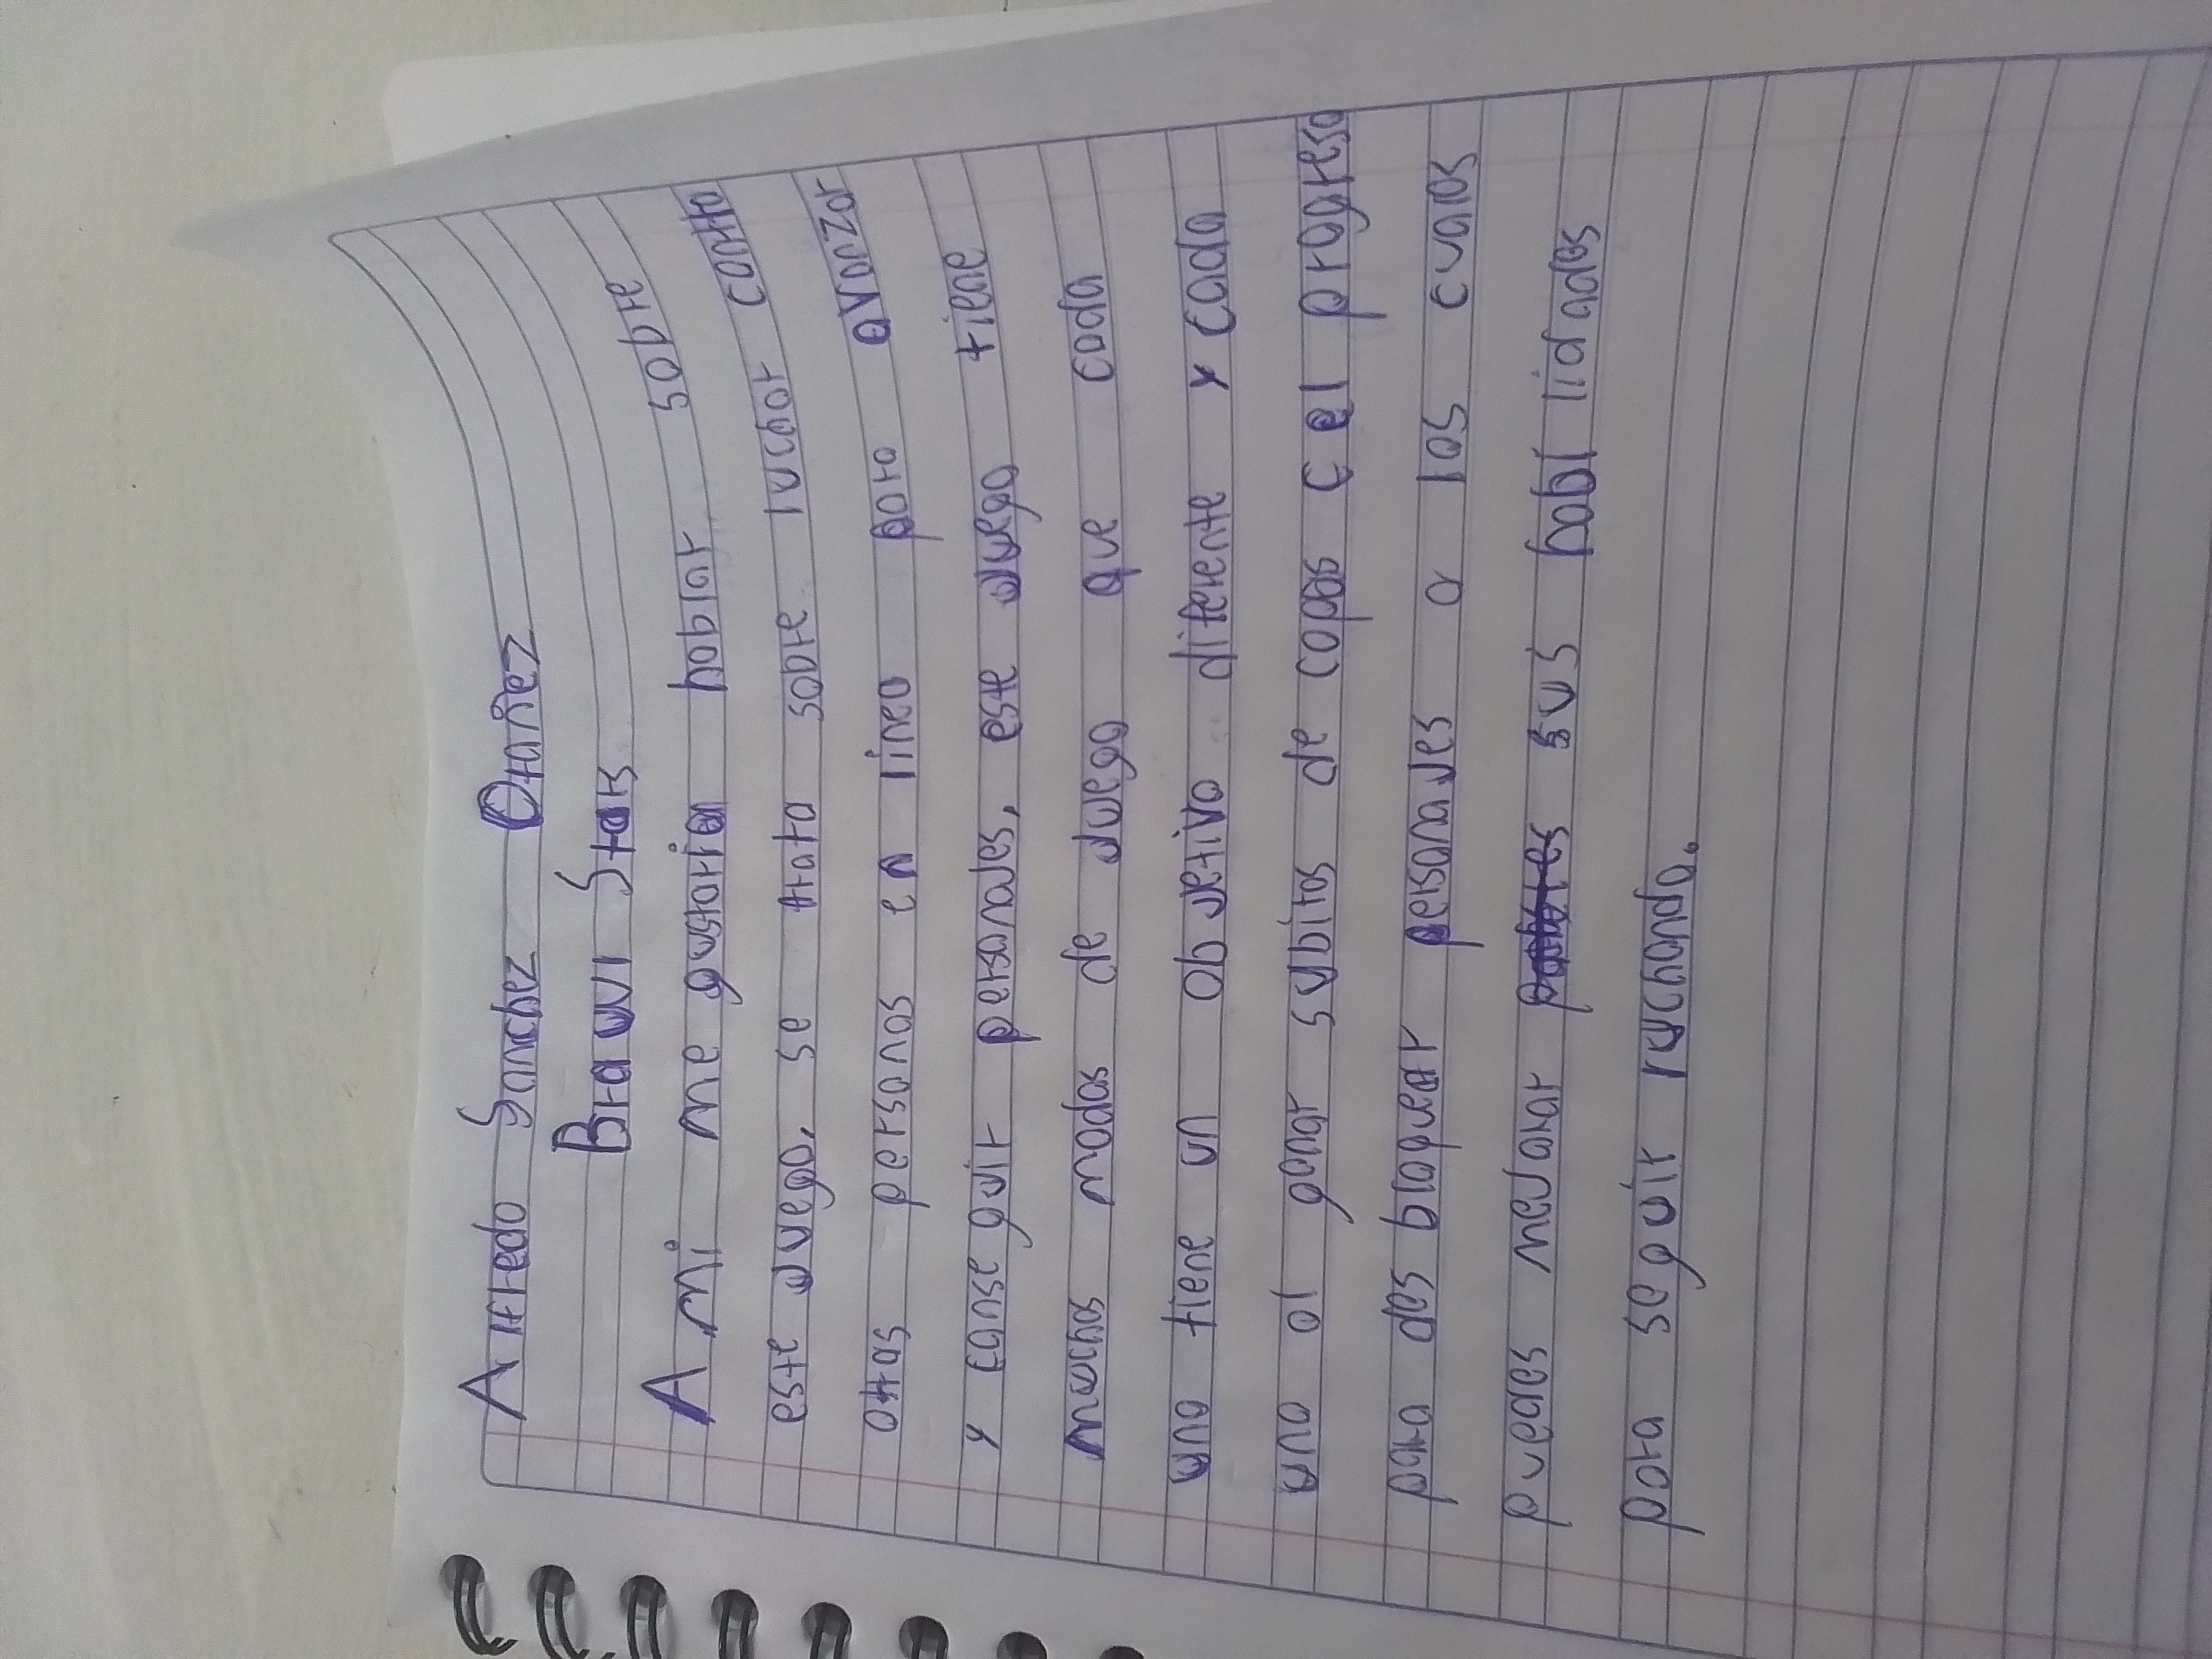 Alfredo Sanchez Ordñez
Brawl Stars
A mi me gustaria hablar sobre
este Juego, se trata sobre luchar contra
otras personas en linea para avanzar
y conse guir personaJes, este Juego tiene
muchos modos de Juego que cada
uno tiene un obJetivo diferente y cada
uno al ganar subiras de copas c el progreso
para des bloquear personaJes a los cuales
puedes meJorar sus habi lidades
para seguir luchando.